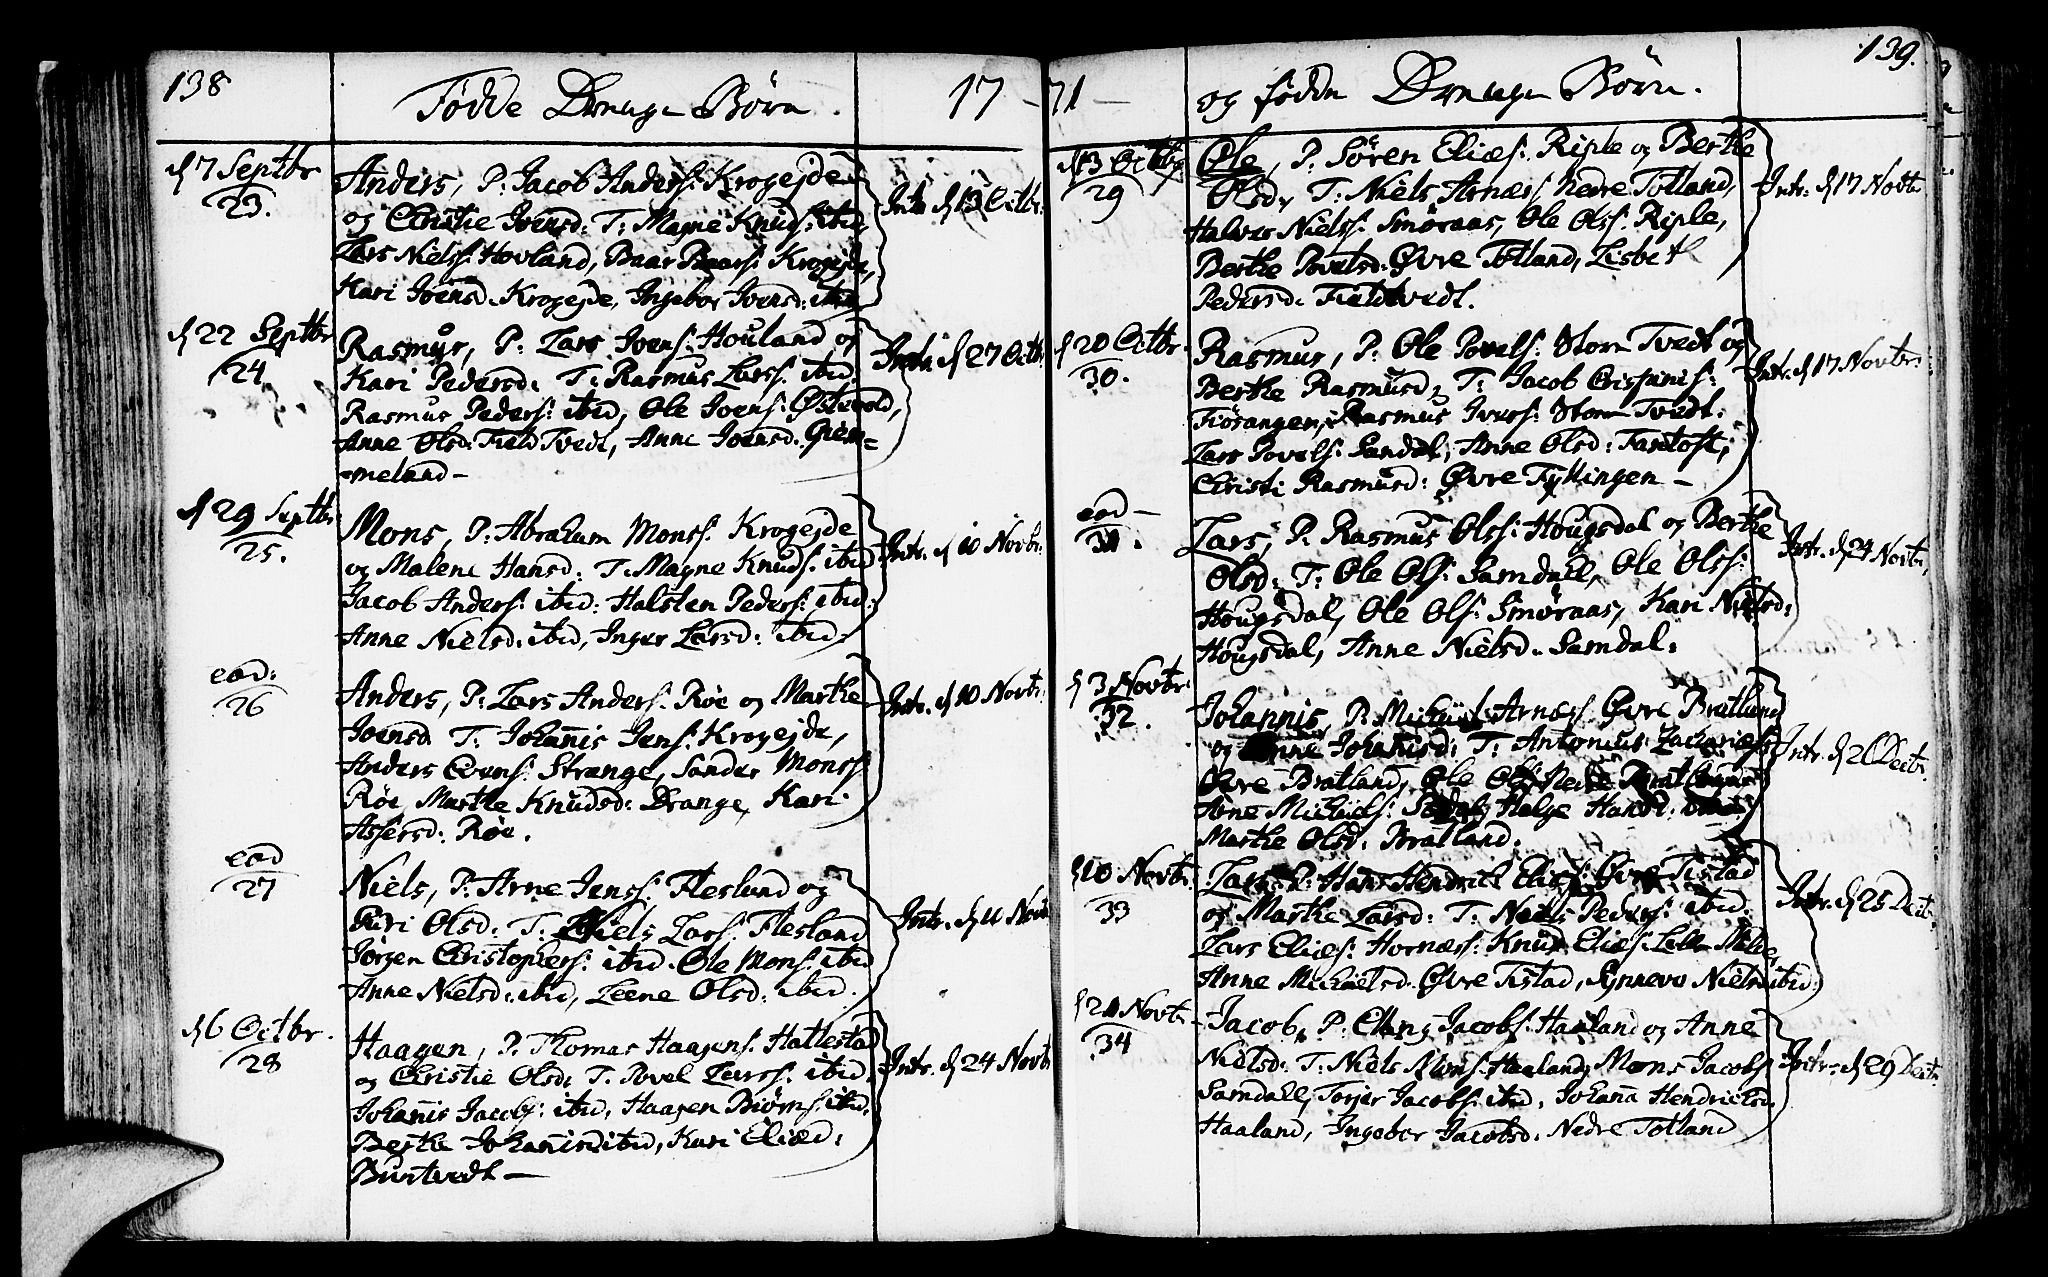 138
Fødde Drenge Børn.
17-
d 7 Septbr
23.
Anders, P: Jacob Anders: Krogejde
og Christie Joensd: T: Magne Knuds: ibid,
Lars Nielss: Hovland, Baar Baars: Krogejde,
Kari Joensd. Krogejde, Ingebor Joensd: ibid
Intr. d 13 Octbr:
d 22 Septbr
24
Rasmus, P: Lars Joens: Houland og
Kari Pedersd: T: Rasmus Larss: ibid
Rasmus Peders: ibid, Ole Joens: Østevold,
Anne Olsd: Field Tvedt, Anne Joensd. Giem=
=meland-
Intr. d 27 Octbr
d 29 Septbr
25.
Mons, P: Abraham Monss: Krogejde
og Malene Hansd: T: Magne Knuds: ibid
Jacob Anders: ibid: Halsten Peders: ibid:
Anne Nielsd: ibid, Inger Larsd: ibid:
Intr. d 10 Novbr:
eod:
26
Anders, P: Lars Anders: Røe og Marthe
Joensd T: Johannis Jens: Krogejde,
Anders Evens: Strange, Sander Monss:
Røe, Marthe Knudsd: Drange, Kari
Assersd: Røe.
Intr. d 10 Novbr:
eod
27
Niels, P: Arne Jenss: Flesland og
Guri Olsd: T: Niels Larss: Flesland
Jørgen Christophers: ibid. Ole Mons: ibid
Anne Nielsd: ibid, Leene Olsd: ibid.
Intr. d 11 Novbr
d 6 Octbr.
28
Haagen, P. Thomas Haagens: Hattestad
og Christie Olsd: T: Povel Larss: ibid,
Johannis Jacobs: ibid, Haagen Biørns: ibid,
Berthe Johannisd ibid, Kari Eliæd:
Burtvedt-
Intr. d 24 Novbr
139.
71-
og fødde Drenge Børn.
d 13 Octbr
29
Ole, P. Søren Eliæs: Riple og Berthe
Olsd, T: Niels Arnæs: Nedre Totland,
Halvor Nielss: Smøraas, Ole Olss: Riple,
Berthe Povelsd: Øvre Totland, Lisbet
Pedersd: Fieldtvedt.
Intr. d 17 Novbr
d 20 Octbr.
30.
Rasmus, P: Ole Povels: Store Tvedt og
Berthe Rasmusd: T: Jacob Crispinis:
Fiøsangen, Rasmus Ivers: Store Tvedt:
Lars Povels: Sandal, Anne Olsd: Fantoft,
Christi Rasmusd: Øvre Fyllingen-
Intr. d 17 Novbr:
eod-
31.
Lars, P. Rasmus Olss: Hougsdal og Berthe
Olsd: T: Ole Ols: Samdall, Ole Olss:
Hougsdal, Ole Ols: Smøraas, Kari Nielsd:
Hougsdal, Anne Nielsd. Samdal:
Intr. d 24 Novbr,
d 3 Novbr:
32.
Johannis, P: Michiels Arnæs: Øvre Bratland
og Anne Johannisd: T: Antonius Zachariæs:
Øvre Bratland, Ole Ols: Nedre Bratland
Arne Michiels: Helge Hansd:
Marthe Olsd: Bratland.
Intr. d Decbr.
d 10 Novbr.
33
Lars P: Hans Hendrich Eliæs: Øvre Tistad
og Marthe Larsd: T: Niels Peders: ibid.
Lars Eliæs: Hornæs: Knud Eliæs: Lille Milde,
Anne Michielsd. Øvre Tistad, Synneve Nielsd ibid:
Intr. d 25 Decbr.
d 21 Novbr.
34
Jacob, P. Elling Jacobs: Haaland og Anne
Nielsd: T: Niels Mons: Haaland, Mons Jacobs:
Samdall, Torjer Jacobs: ibid, Johanna Hendricksd.
Haaland, Ingebor Jacobsd: Nedre Totland
Intr. d 29 Decbr.